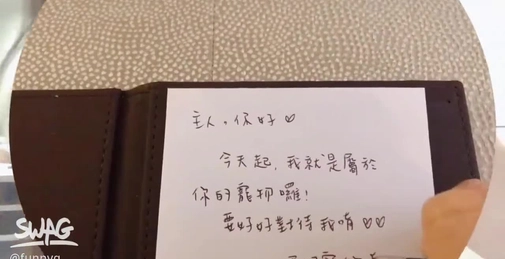 主人,你好♡
今天起,我就是屬於
你的寵物囉!
要好好對待我唷♡♡
SWAG
@funnyq